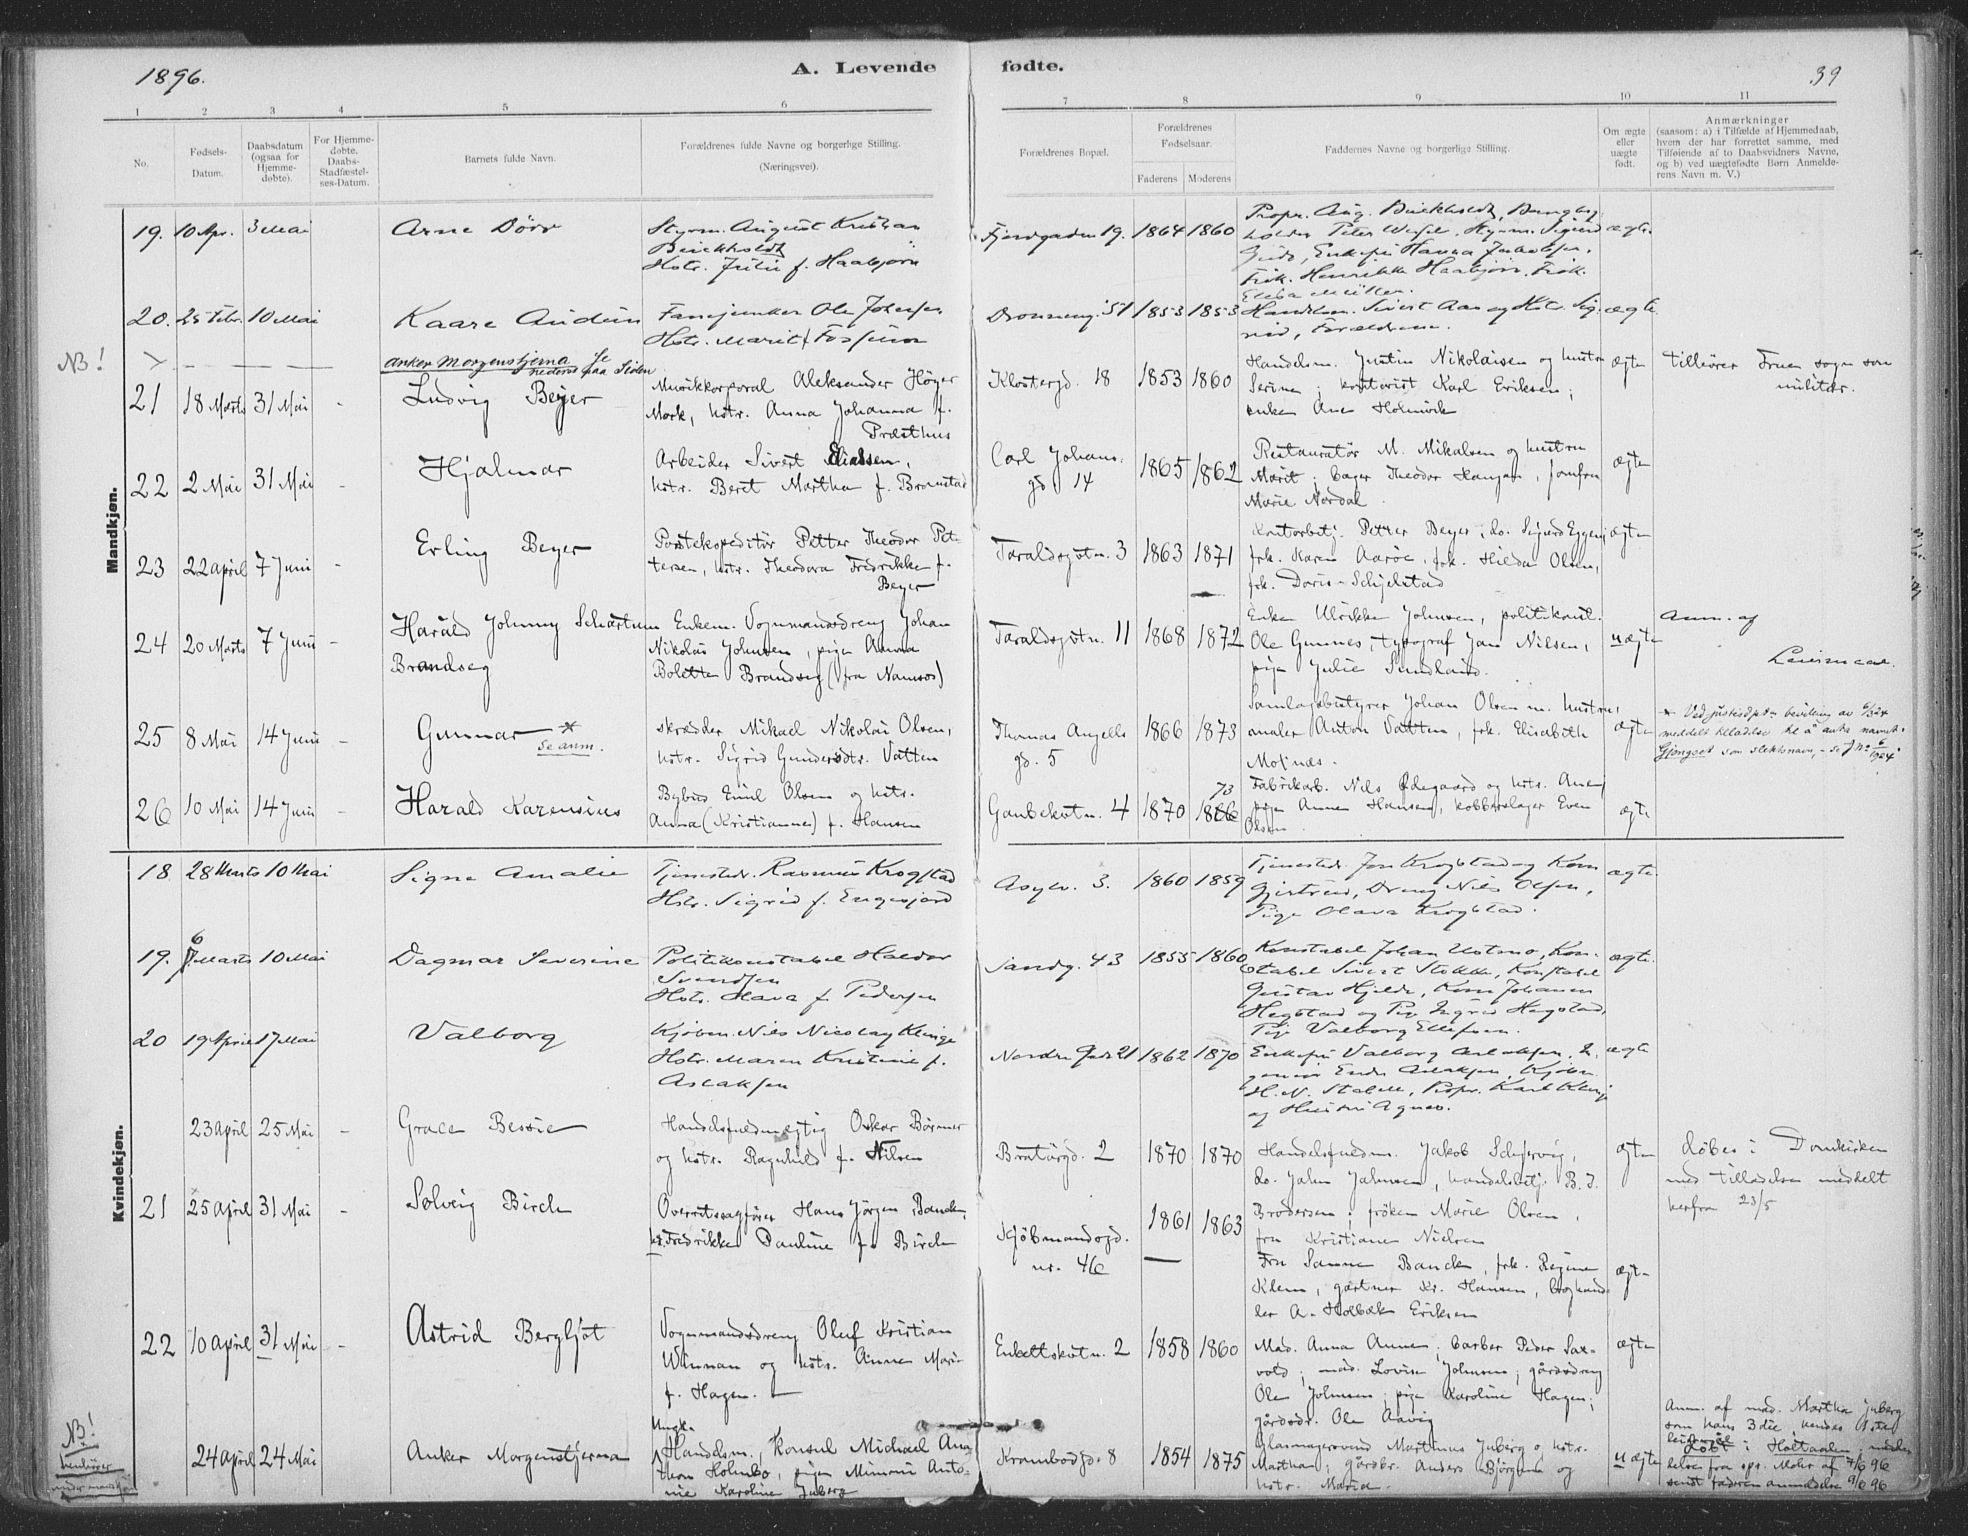 1896.
A. Levende fødte.
39
1 2 3 4 5 6 7 8 9 10 11
No.
Fødsels-Datum.
Daabsdatum (ogsaa for Hjemme-døbte).
For Hjemme-døbte. Daabs-Stadfæstel-ses-Datum.
Barnets fulde Navn.
Forældrenes fulde Navne og borgerlige Stilling.
(Næringsvei).
Forældrenes Bopæl.
Forældrenes Fødselsaar.
Faderens Moderens
Faddernes Navne og borgerlige Stilling.
Om ægte eller uægte født.
Anmærkninger
(saasom: a) i Tilfælde af Hjemmedaab, hvem der har forrettet samme, med Tilføiende af to Daabsvidners Navne, og b) ved uægtefødte Børn Anmelde-rens Navn m. V.)
Mandkjøn.
19. 10 Apr. 3 Mai Arne Dörr
Styrm. August Kristian
Birkholdt
Hstr. Julie f. Haabjørn
Fjordgaden 19. 1864 1860
Propr. Aug. Birkholdt,
Peter Styrm. Sigurd
Enkefru Hanna Jakobsen,
Frk. Henrikke Haabjørn, Frk.
Müller.
ægte
20. 25 Febr. 10 Mai Kaare Audun
Fanejunker Ole Johnsen
Hstr. Marit f. Fossum
Dronningg. 51 1853 1853
Handelsm. Sivert Aas og Hstr. Sig-
rid, Forældrene.
ægte
NB!
Anker Morgenstjerna Se
nederst paa Siden
21 18 Marts 31 Mai - Ludvig Beyer
Musikkorporal Aleksander Höyer
Mork, hstr. Anna Johanna f.
Præsthus
Klostergd. 18 1853 1860
Handelsm. Justin Nikolaisen og hustru
Serine; kontorist Karl Eriksen;
enken Ane Holmvik
ægte
tilhører Fruen sogn som
militær.
22 2 Mai 31 Mai - Hjalmar
Arbeider Sivert Eliassen,
hstr. Beret Martha f. Bromstad
Carl Johans
gd 14 1865 1862
Restauratör M. Mikalsen og hustru
Marit; bager Theodor Hangan, jomfru
Marie Nordal
ægte
23 22 april 7 Juni - Erling Beyer
Postekspeditör Petter Theodor Pet-
tersen, hstr. Theodora Fredrikke f.
Beyer
Taraldsgvtn. 3 1863 1871
Kontorbetj. Petter Beyer, do. Sigurd Eggen;
frk. Karen Aaröe, frk. Hilda Olsen,
frk. Doris Schjelstad
ægte
24 20 Marts 7 Juni - Harald Johnny Schartum
Brandseg
Enkem. Vognmandsdreng Johan
Nikolai Johnsen, pige Anna
Bolette Brandseg (fra Namsos)
Taraldsgvtn. 11 1868 1872
Enken Ulrikke Johnsen, politikonst.
Ole Gunnes, typograf Jan Nilsen,
pige Julie Sundland.
uægte
Anm. af
Leiermaal.
25 8 Mai 14 Juni - Gunnar *
Se anm.
skrædder Mikael Nikolai Olsen,
hstr. Sigrid Gundersdtr. Vatten
Thomas Angells
gd. 5 1866 1873
Samlagsbestyrer Johan Olsen m. hustru,
maler Anton Vatten, frk. Elisabeth
Molnes.
ægte
* Ved justisdpt's bevilling av 6/3 24
meddelt tilladelse til å anta navnet
Gjengset som slektsnavn, - se J № 6/1924
26 10 Mai 14 Juni Harald Karensius
Bybud Emil Olsen og hstr.
Anna (Kristianne) f. Hansen
Gaubekvtn. 4 1870 1866 73
Fabrikarb. Nils Ödegaard og hstr. Ane,
pige Anna Hansen, kobberslager Even
Olsen.
ægte
Kvindekjøn.
18 28 Marts 10 Mai Signe Amalie
Tjenestedr. Rasmus Krogstad
Hstr. Sigrid f. Engesjord
Asylv. 3. 1860 1859
Tjenestedr. Jon Krogstad og Kone
Gjertrud, Dreng Nils Olsen,
Pige Olava Krogstad.
ægte.
19. 6 Marts 10 Mai Dagmar Severine
Politikonstabel Haldor
Svendsen
Hstr. Olava f. Pedersen
Sandg. 43 1855 1860
Konstabel Johan Ustmo, Kon-
stabel Sivert Stokke, Konstabel
Gustav Hjelde, Kone Johanna
Hegstad og Pige Ingrid Hegstad,
Pige Valborg Ellefsen.
ægte.
20 19 April 17 Mai Valborg
Kjöbm. Nils Nicolay Klinge
Hstr. Maren Kristine f.
Aslaksen
Nordre Gade 21 1862 1870
Enkefru Valborg Aslaksen,
Aslaksen, Kjöbm.
H. N. Stabell, Propr. Karl Klinge
og Hustru Agnes.
ægte
23 April 25 Mai - Grace Bessie
Handelsfuldmægtig Oskar Börmer
og hstr. Ragnhild f. Nilsen
Bratörgd. 2 1870 1870
Handelsfuldm. Jakob Schjervig,
do. John Johnsen, handelsbetj. B. J.
Brodersen; fröken Marie Olsen,
fru Kristiane Nielsen
ægte
döbes i Domkirken
med tilladelse meddelt
herfra 23/5
21 25 April 31 Mai - Solveig Birch
Overretssagförer Hans Jörgen Banck,
hstr. Fredrikke Pauline f. Birch
Kjöbmandsgd.
nr. 46 1861 1863
Fru Sanna Banck, frk. Regine
Klem, gartner Kr. Hansen, boghand-
ler A. Holbæk Eriksen
ægte
22 10 April 31 Mai - Astrid Bergljot
Vognmandsdreng Oluf Kristian
Winnan og hstr. Anna Marie
f. Hagen.
Enkeltskvtn. 2 1858 1860
Mad. Anna Aune; barber Peder Sax-
vold; mad. Lovise Johnsen; gårdsdreng
Ole Johnsen; pige Karoline Hagen;
gårdsdr. Ole Aavig
ægte
NB!
24 April 24 Mai Anker Morgenstjerna
Ungk.
Handelsm., Konsul Michael Ana-
thon Holmbo, pigen Mimmi Anto-
nie Karoline Juberg
Krambodgd. 8 1854 1875
Glasmagersvend Marthinus Juberg o, hstr.
Martha; gårdbr. Anders Björgum og
hstr. Maria.
uægte
Anm. af mad. Martha Juberg
som hans 3die, hendes 1ste
leiermaal
döbt i Holtaalen; meddel-
lelse fra spr. Mohr af 7/6 96
sendt faderen anmeldelse 9/6 96